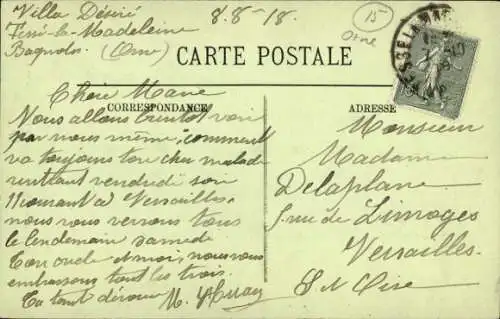 Villa Désiré 8.8-18. 15
Tessé-la-Madeleine Orne
Bagnoles (Orne)
CARTE POSTALE
CORRESPONDANCE
Chère Marie
Nous allons bientôt voir
par nous même, comment
va toujours ton cher malade
rentrant vendredi soir
à Versailles,
nous nous verrons tous
le lendemain samedi
Ton oncle et moi, nous vous
embrassons tout les trois.
Ta tante
M.
ADRESSE
Monsieur
Madame
Delaplane
5 rue de Limoges
Versailles.
S et Oise